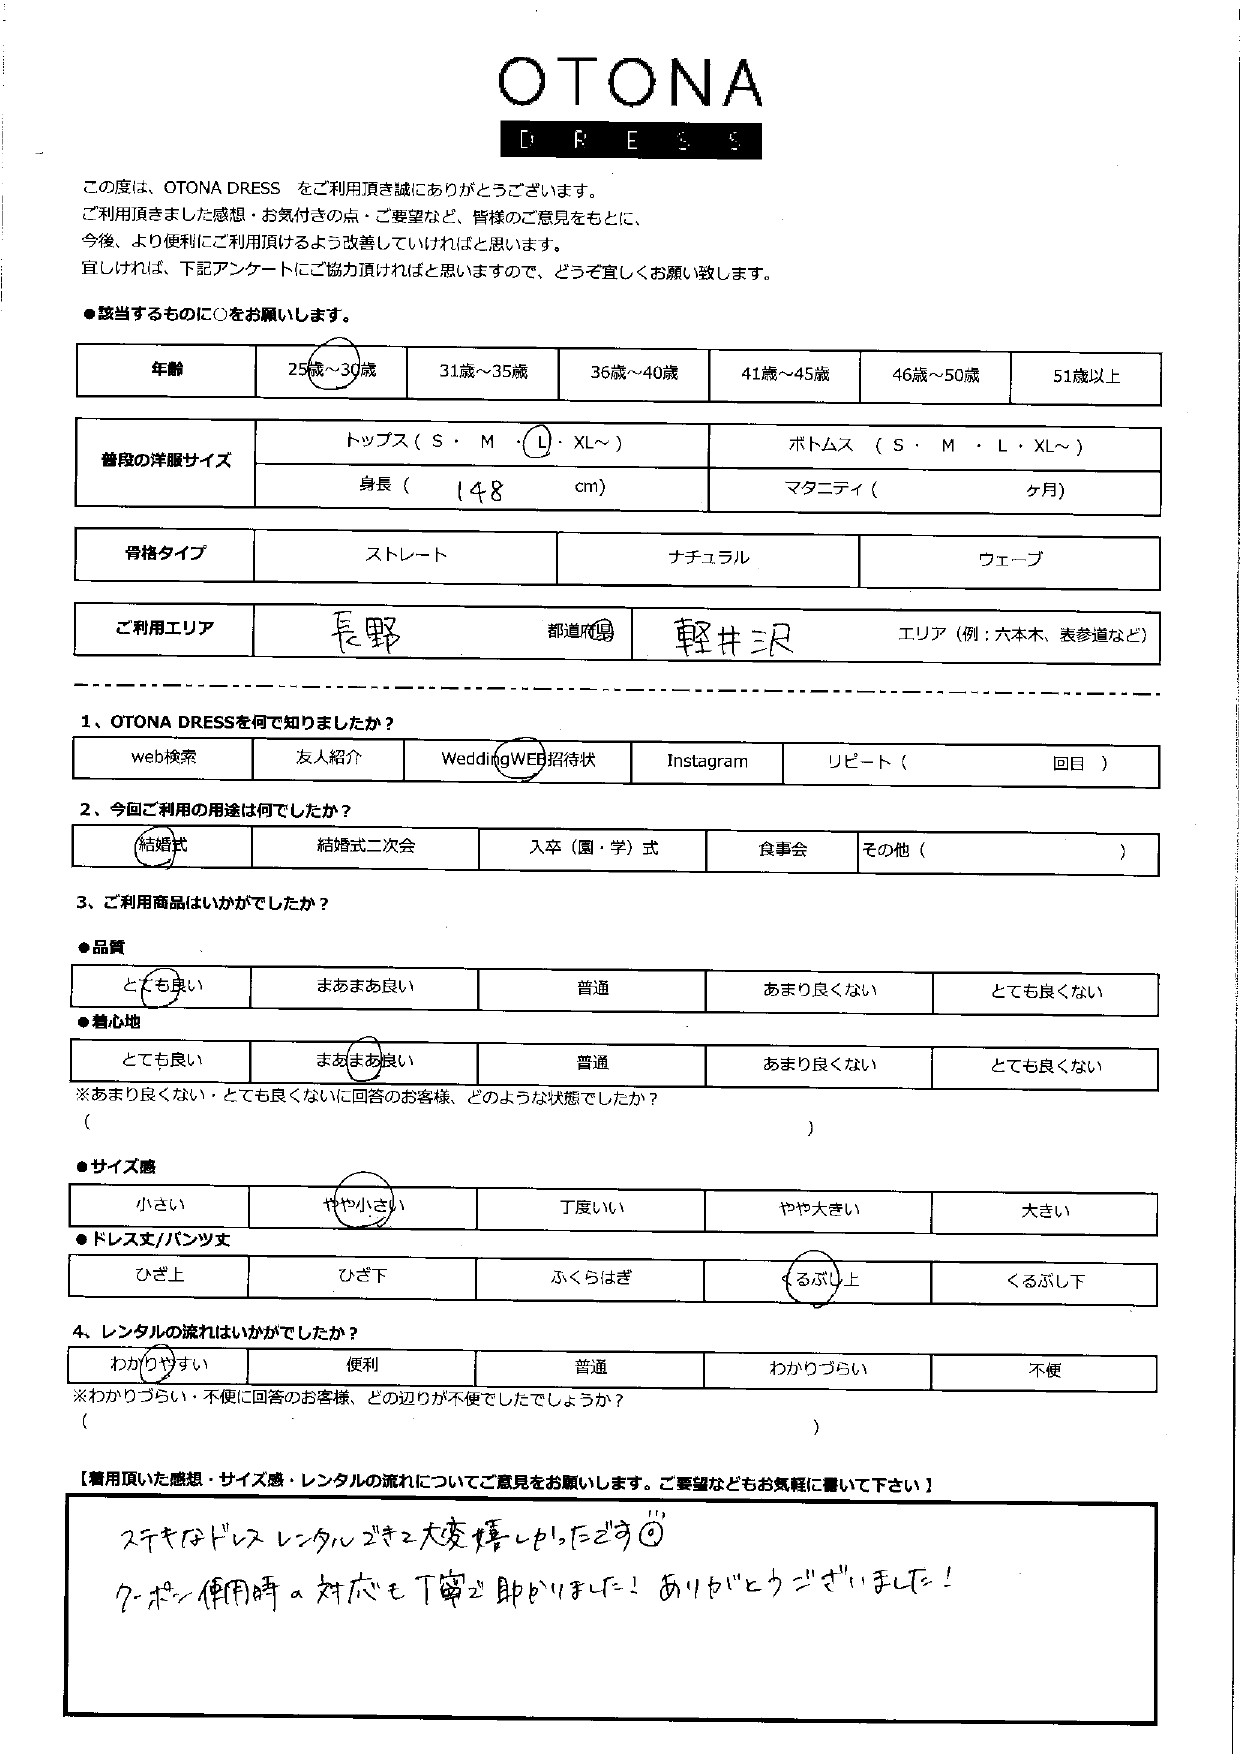 OTONA
DRESS
この度は、OTONA DRESS をご利用頂き誠にありがとうございます。
ご利用頂きました感想・お気付きの点・ご要望など、皆様のご意見をもとに、
今後、より便利にご利用頂けるよう改善していければと思います。
宜しければ、下記アンケートにご協力頂ければと思いますので、どうぞ宜しくお願い致します。
●該当するものに○をお願いします。
年齢 25歳～30歳 31歳～35歳 36歳～40歳 41歳～45歳 46歳～50歳 51歳以上
普段の洋服サイズ トップス ( S ・ M ・ L ・ XL～ ) ボトムス ( S ・ M ・ L ・ XL～ )
身長 ( 148 cm) マタニティ ( ヶ月)
骨格タイプ ストレート ナチュラル ウェーブ
ご利用エリア 長野 都道府県 軽井沢 エリア（例：六本木、表参道など）
1、OTONA DRESSを何で知りましたか？
web検索 友人紹介 WeddingWEB招待状 Instagram リピート ( 回目 )
2、今回ご利用の用途は何でしたか？
結婚式 結婚式二次会 入卒（園・学）式 食事会 その他 ( )
3、ご利用商品はいかがでしたか？
●品質
とても良い まあまあ良い 普通 あまり良くない とても良くない
●着心地
とても良い まあまあ良い 普通 あまり良くない とても良くない
※あまり良くない・とても良くないに回答のお客様、どのような状態でしたか？
( )
●サイズ感
小さい やや小さい 丁度いい やや大きい 大きい
●ドレス丈/パンツ丈
ひざ上 ひざ下 ふくらはぎ くるぶし上 くるぶし下
4、レンタルの流れはいかがでしたか？
わかりやすい 便利 普通 わかりづらい 不便
※わかりづらい・不便に回答のお客様、どの辺りが不便でしたでしょうか？
( )
【着用頂いた感想・サイズ感・レンタルの流れについてご意見をお願いします。ご要望などもお気軽に書いて下さい】
ステキなドレスレンタルできて大変嬉しかったです
クーポン使用時の対応も丁寧で助かりました！ ありがとうございました！